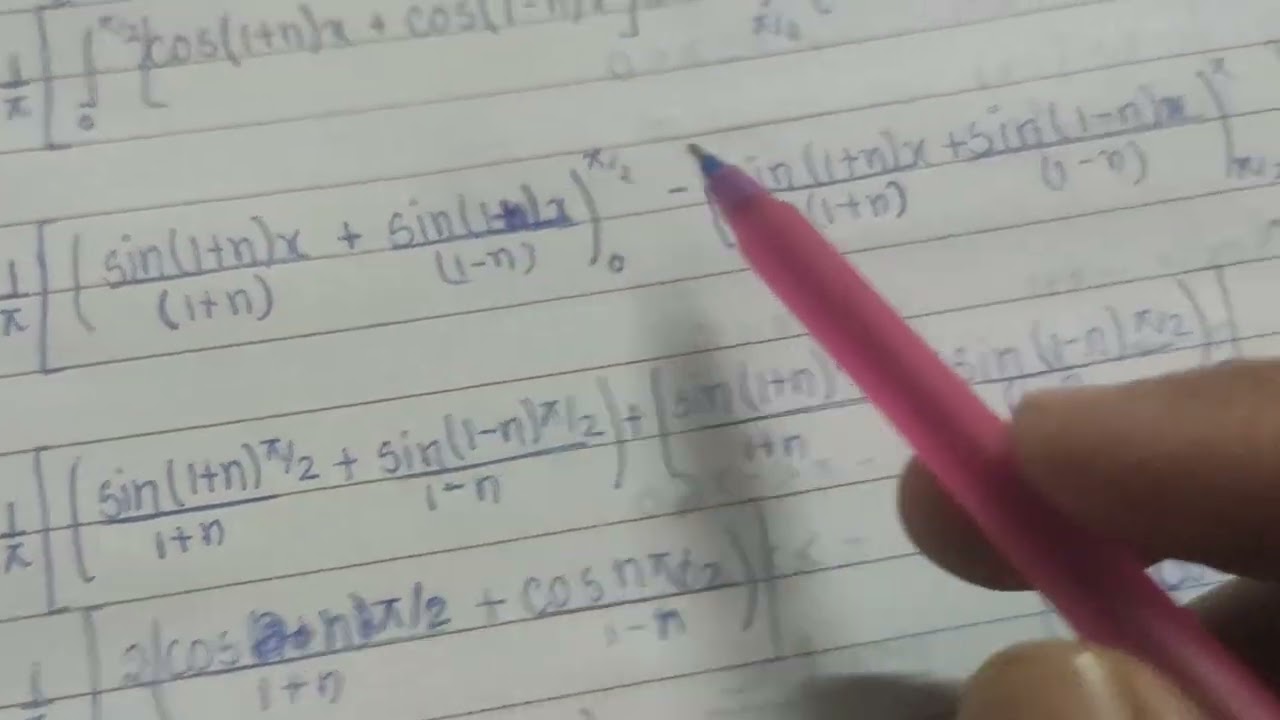 1/π [ ∫₀^π/2 [cos(1+n)x + cos(1-n)x]
1/π [ ( sin(1+n)x/(1+n) + sin(1-n)x/(1-n) )₀^π/2 - ( sin(1+n)x/(1+n) + sin(1-n)x/(1-n) )_π/2^π
1/π [ ( sin(1+n)π/2/1+n + sin(1-n)π/2/1-n ) + ( sin(1+n)/1+n sin(1-n)π/2 ) ]
1/π [ 2( cos nπ/2/1+n + cos nπ/2/1-n ) ]